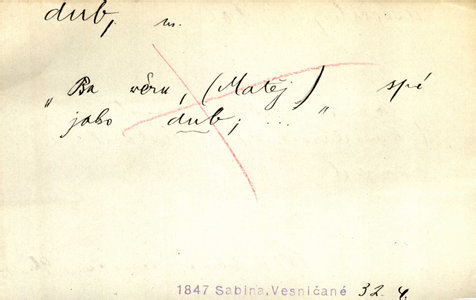 dub, m.
„Ba věru, (Matěj) spí
jako dub; ... "
1847 Sabina, Vesničané 32. 4.